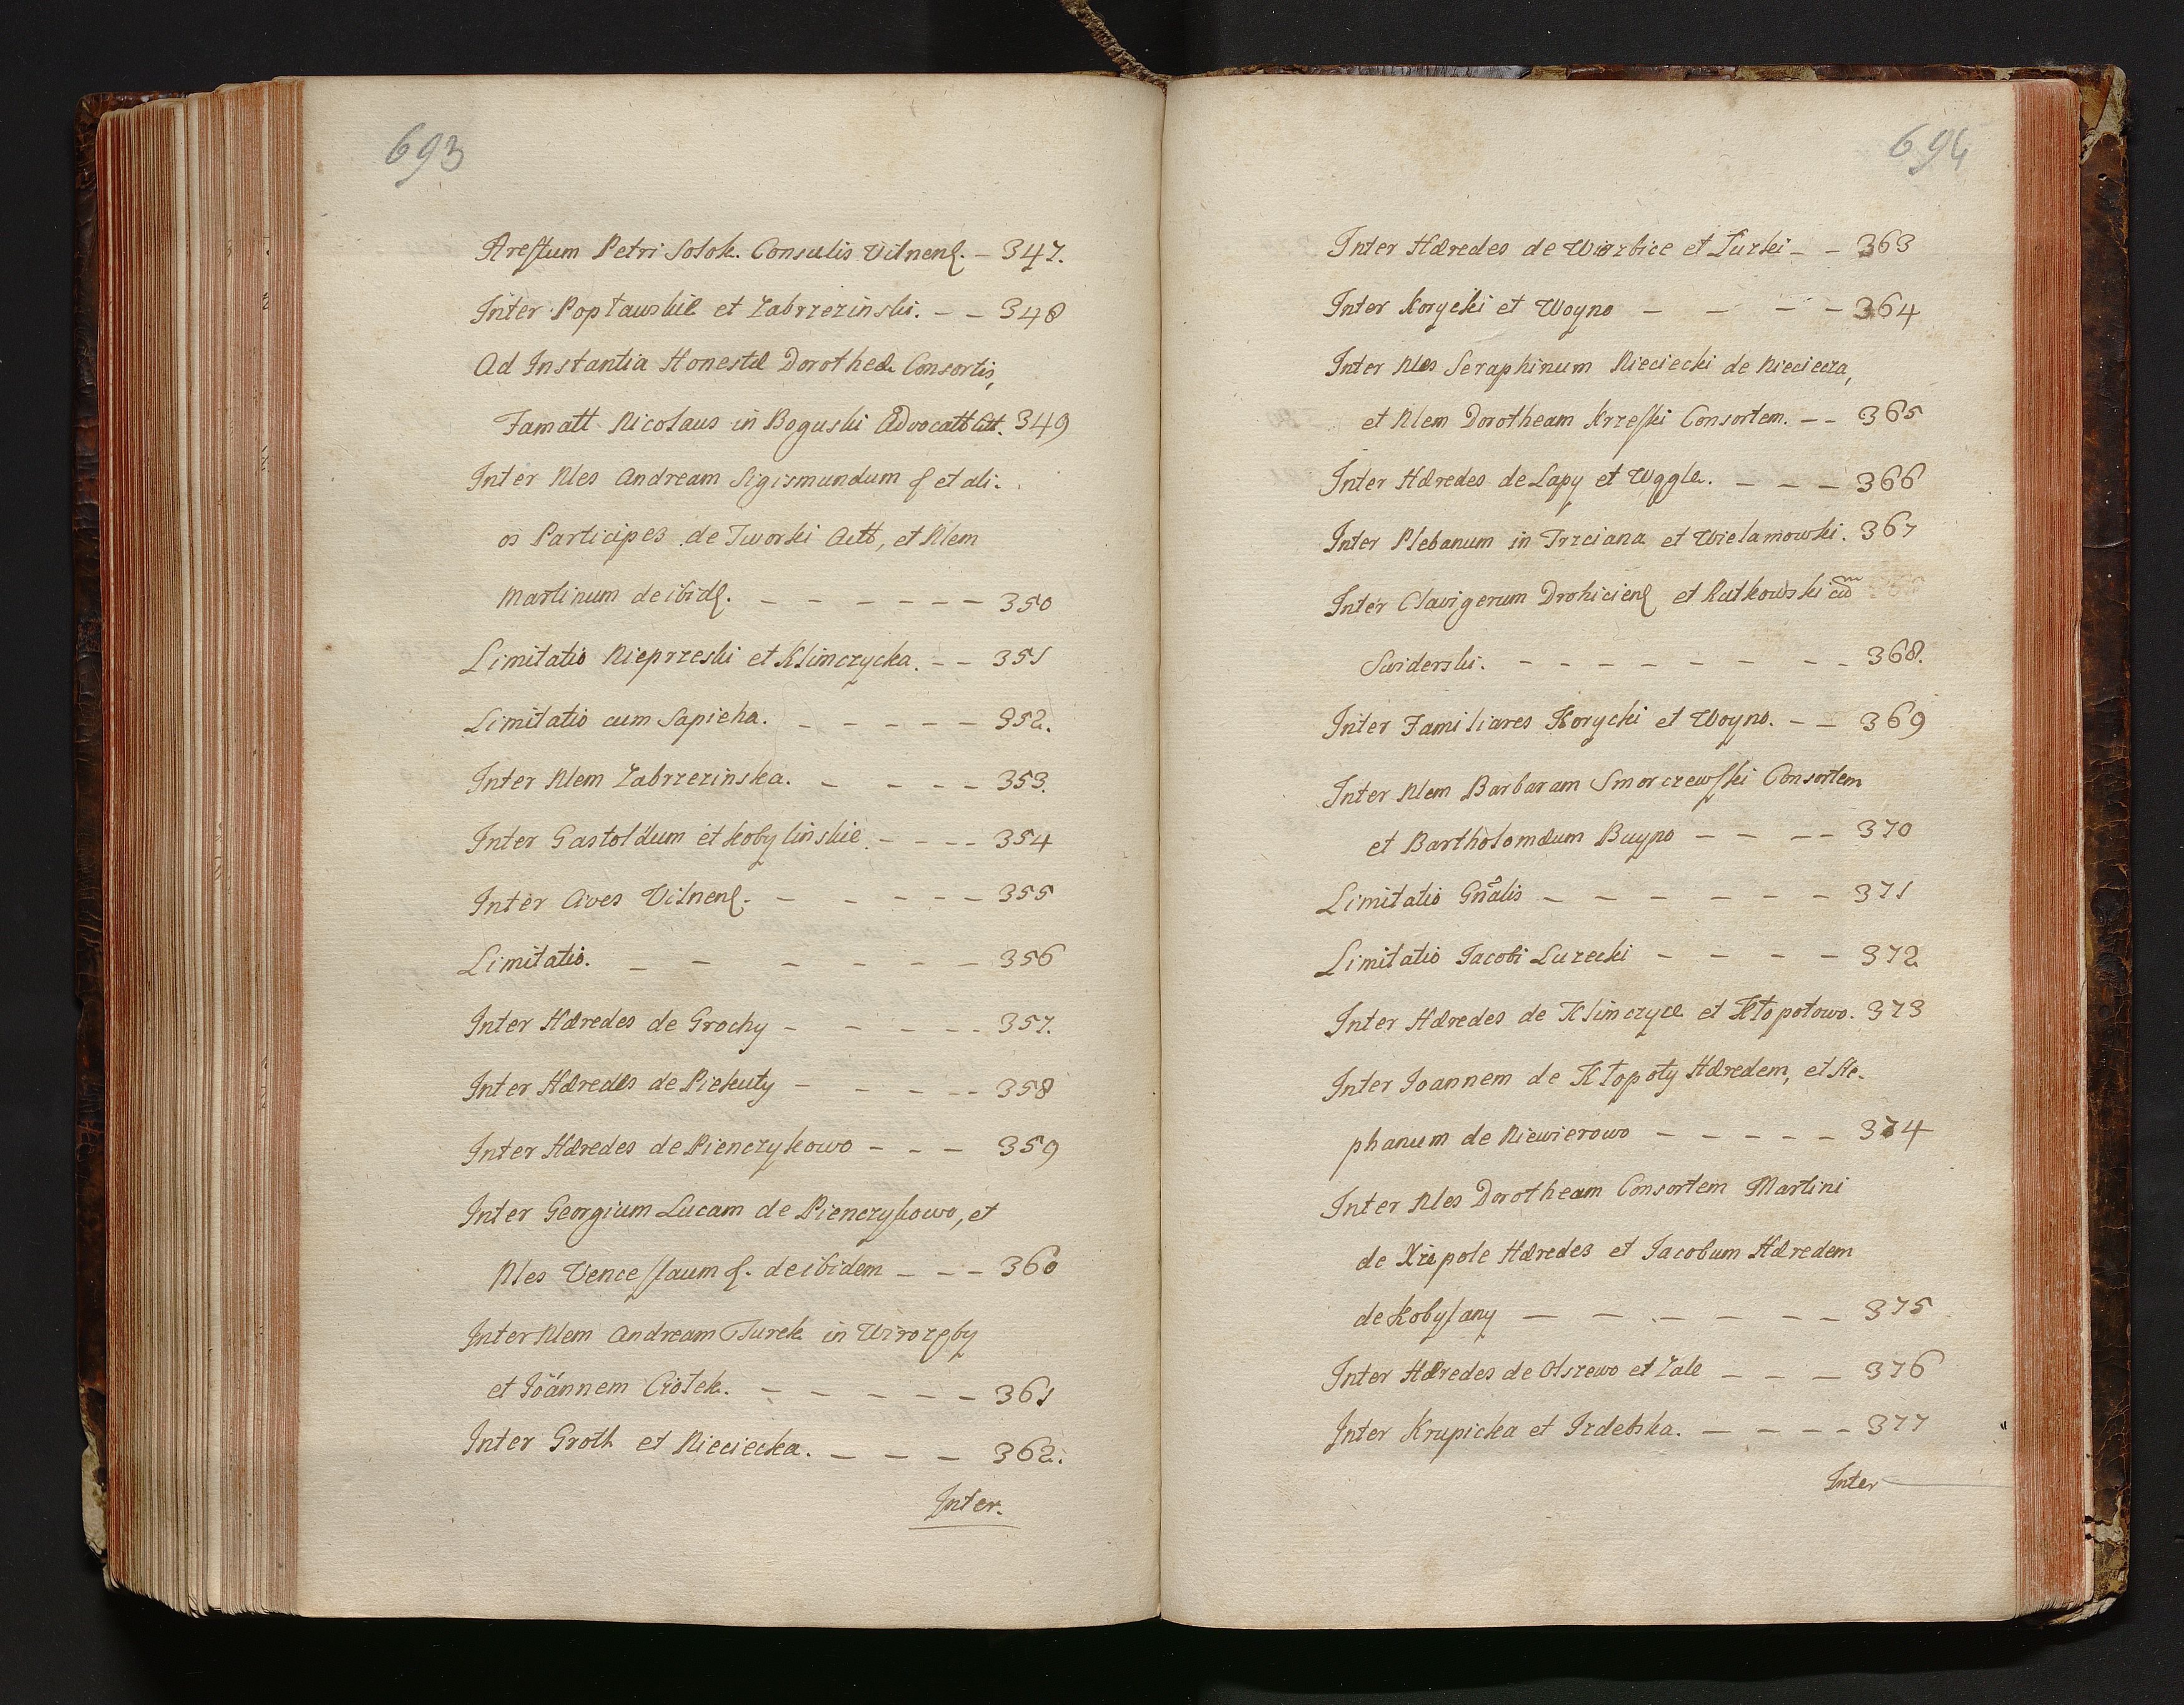 693
Arestum Petri Solok. Consulis Vilnens. - 347.
Inter Popławskie et Zabrzezinski. - - 348
Ad Instantia Honestæ Dorotheæ Consortis,
Famatt Nicolaus in Boguski Advocatt Ctt. 349
Inter Nles Andream Sigismundum et ali-
os Participes de Tworki Actt, et Nlem
Martinum de ibid. - - - - - - 350
Limitatio Nieprzeski et Klimczycka. - - 351
Limitatio cum Sapieha. - - - - - 352.
Inter Nlem Zabrzezinska. - - - - 353.
Inter Gastoldum et Kobylinskie. - - - - 354
Inter Cives Vilnens. - - - - - 355
Limitatio. - - - - - - 356
Inter Hæredes de Grochy - - - - - 357.
Inter Hæredes de Piekuty - - - - - 358
Inter Hæredes de Pienczykowo - - - 359
Inter Georgium Lucam de Pienczykowo, et
Nles Venceslaum de ibidem - - - 360
Inter Nlem Andream Turek in Wirozęby
et Joannem Ciołek. - - - - - - 361
Inter Groth et Nieciecka. - - - 362.
Inter.
694
Inter Hæredes de Wierzbice et Turki - - 363
Inter Korycki et Woyno - - - - 364
Inter Nles Seraphinum Nieciecki de Nieciecza,
et Nlem Dorotheam Krzeski Consortem. - - 365
Inter Hæredes de Lapy et Wggle. - - - 366
Inter Plebanum in Trzciana et Wielamowski. 367
Inter Clavigerum Drohiciens et Rutkowski cum
Swiderski. - - - - - - - - 368.
Inter Familiares Korycki et Woyno. - - 369
Inter Nlem Barbaram Smorczewski Consortem
et Bartholomæum Buyno - - - - 370
Limitatio Gnalis - - - - - - 371
Limitatio Jacobi Luzecki - - - - 372
Inter Hæredes de Klimczyce et Kłopotowo. 373
Inter Joannem de Kłopoty Hæredem, et Ste-
phanum de Niewierowo - - - - - 374
Inter Nles Dorotheam Consortem Martini
de Xiepole Hæredes et Jacobum Hæredem
de Kobylany - - - - - - 375
Inter Hæredes de Olszewo et Zale - - - 376
Inter Krupicka et Izdebska. - - - - 377
Inter